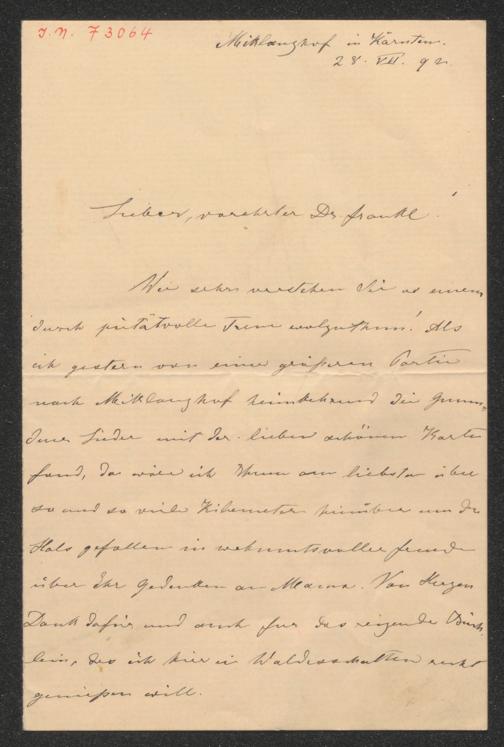 J.N. 73064
Miklanzhof in Kärnten.
28. VII. 92.
Lieber, verehrter Dr. Frankl!
Wie sehr verstehen Sie es einem
durch pietätvolle Treue wolzuthun! Als
ich gestern von einer größeren Partie
nach Miklanzhof heimkehrend die Gmun-
dner Lieder mit der lieben schönen Karte
fand, da wäre ich Ihnen am liebsten über
so und so viele Kilometer hinüber um den
Hals gefallen in wehmutsvoller Freude
über Ihr Gedenken an Mama. Von Herzen
Dank dafür und auch für das reizende Büch-
lein, das ich hier in Waldesschatten recht
genießen will.